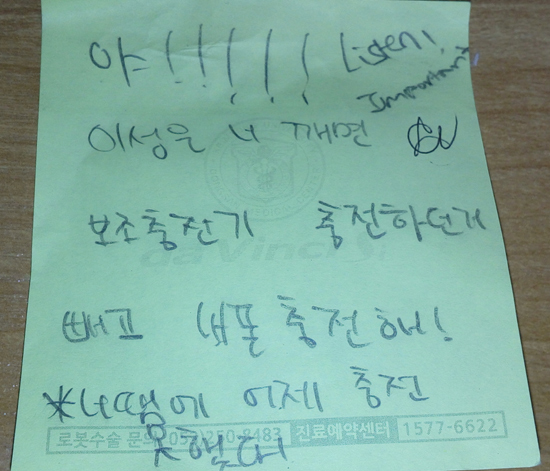 야!!!!! Listen!
Important
이성은 너 깨면
보조충전기 충전하던거
빼고 내폰 충전해!
*너땜에 어제 충전
못했다
da Vinci Si
로봇수술 문의 050-8483 진료예약센터 1577-6622